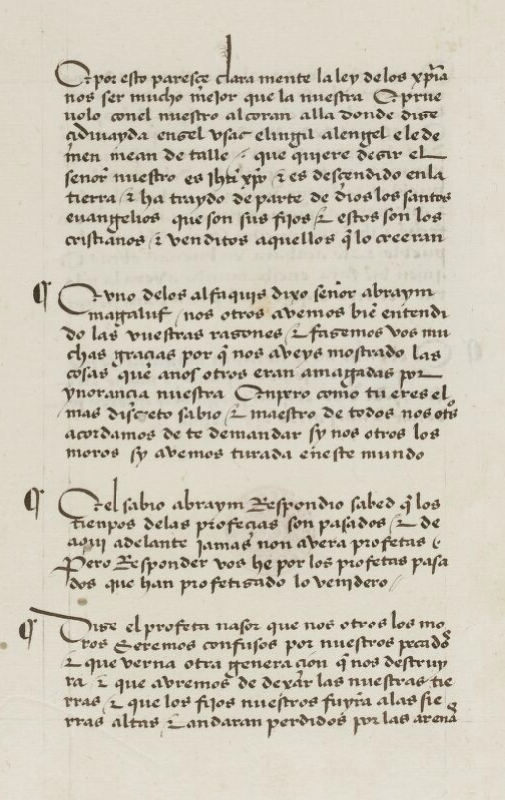 E por esto paresçe clara mente la ley de los xp̃ia
nos ser mucho mejor que la nuestra E prue
volo con el nuestro alcoran alla donde dize
ciduvayda en gel vsac elingil alengel e le de
men mean de talle / que quiere dezir el
señor nuestro es ihũ xp̃o & es desçendido en la
tierra / & ha traydo de parte de dios los santos
evangelios que son sus fijos & estos son los
cristianos / & venditos aquellos q̃ lo creeran
¶ E vno delos alfaquis dixo señor abraym
magaluf / nos otros avemos biẽ entendi
do las vuestras razones / & fazemos vos mu
chas graçias por q̃ nos aveys mostrado las
cosas que anos otros eran amagadas por
ynorançia nuestra Enpero como tu eres el
mas discreto sabio & maestro de todos nos otrõs
acordamos de te demandar sy nos otros los
moros sy avemos turada eneste mundo
¶ E el sabio abraym Respondio sabed q̃ los
tienpos delas profeçias son pasados / & de
aqui adelante jamas non avera profetas &
Pero Responder vos he por los profetas pasa
dos que han profetizado lo venidero /
¶ Dize el profeta nasor que nos otros los mo
ros Seremos confusos por nuestros pecados
& que verna otra generaçion q̃ nos destruy
ra / & que avremos de dexar las nuestras tie
rras / & que los fijos nuestros fuyrã alas sie
rras altas / & andaran perdidos por las arenas